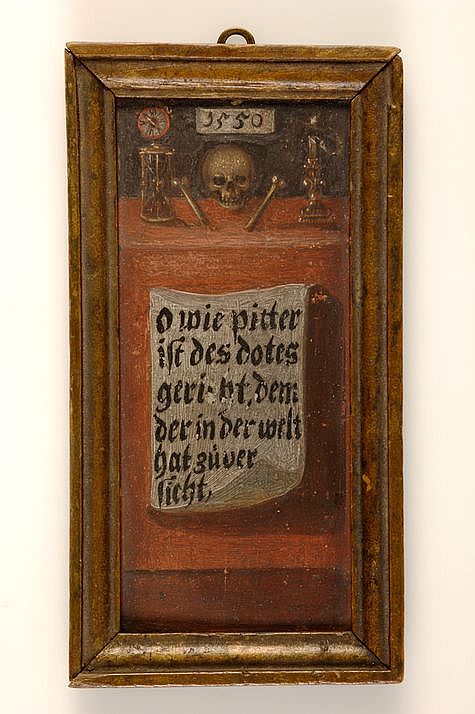 1550
o wie pitter
ist des dotes
gericht, dem
der in der welt
hat züver
sicht,